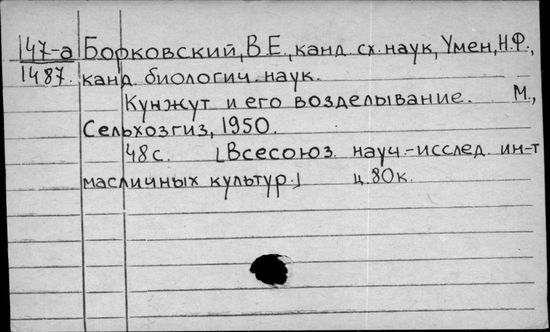 147-а Борковский, В.Е., канд. сх. наук, Умен, Н.Ф.,
1487. канд. биологич. наук.
Кунжут и его возделывание. М.,
Сельхозгиз, 1950.
48 с. [Всесоюз. науч.-исслед. ин-т
масличных культур.] ц. 80 к.